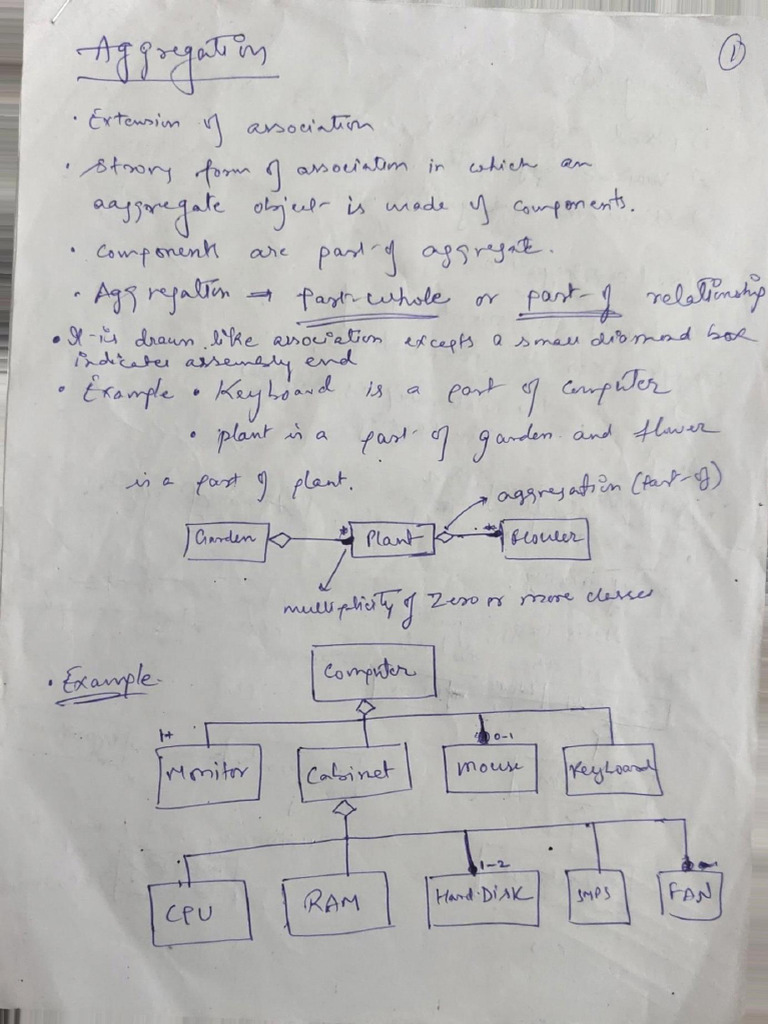 Aggregation
1
• Extension of association
• Strong form of association in which an
aaggregate object is made of components.
• Components are part of aggregate.
• Aggregation → Part-whole or part-of relationship
• It is drawn like association excepts a small diamond box
indicates assembly end
• Example • Keyboard is a part of computer
• plant is a part of garden and flower
is a part of plant.
aggregation (Part-of)
Garden * Plant * Flower
multiplicity of Zero or more classes
• Example
Computer
1+ 0-1
Monitor Cabinet Mouse Keyboard
1-2
CPU RAM Hard-DISK SMPS FAN